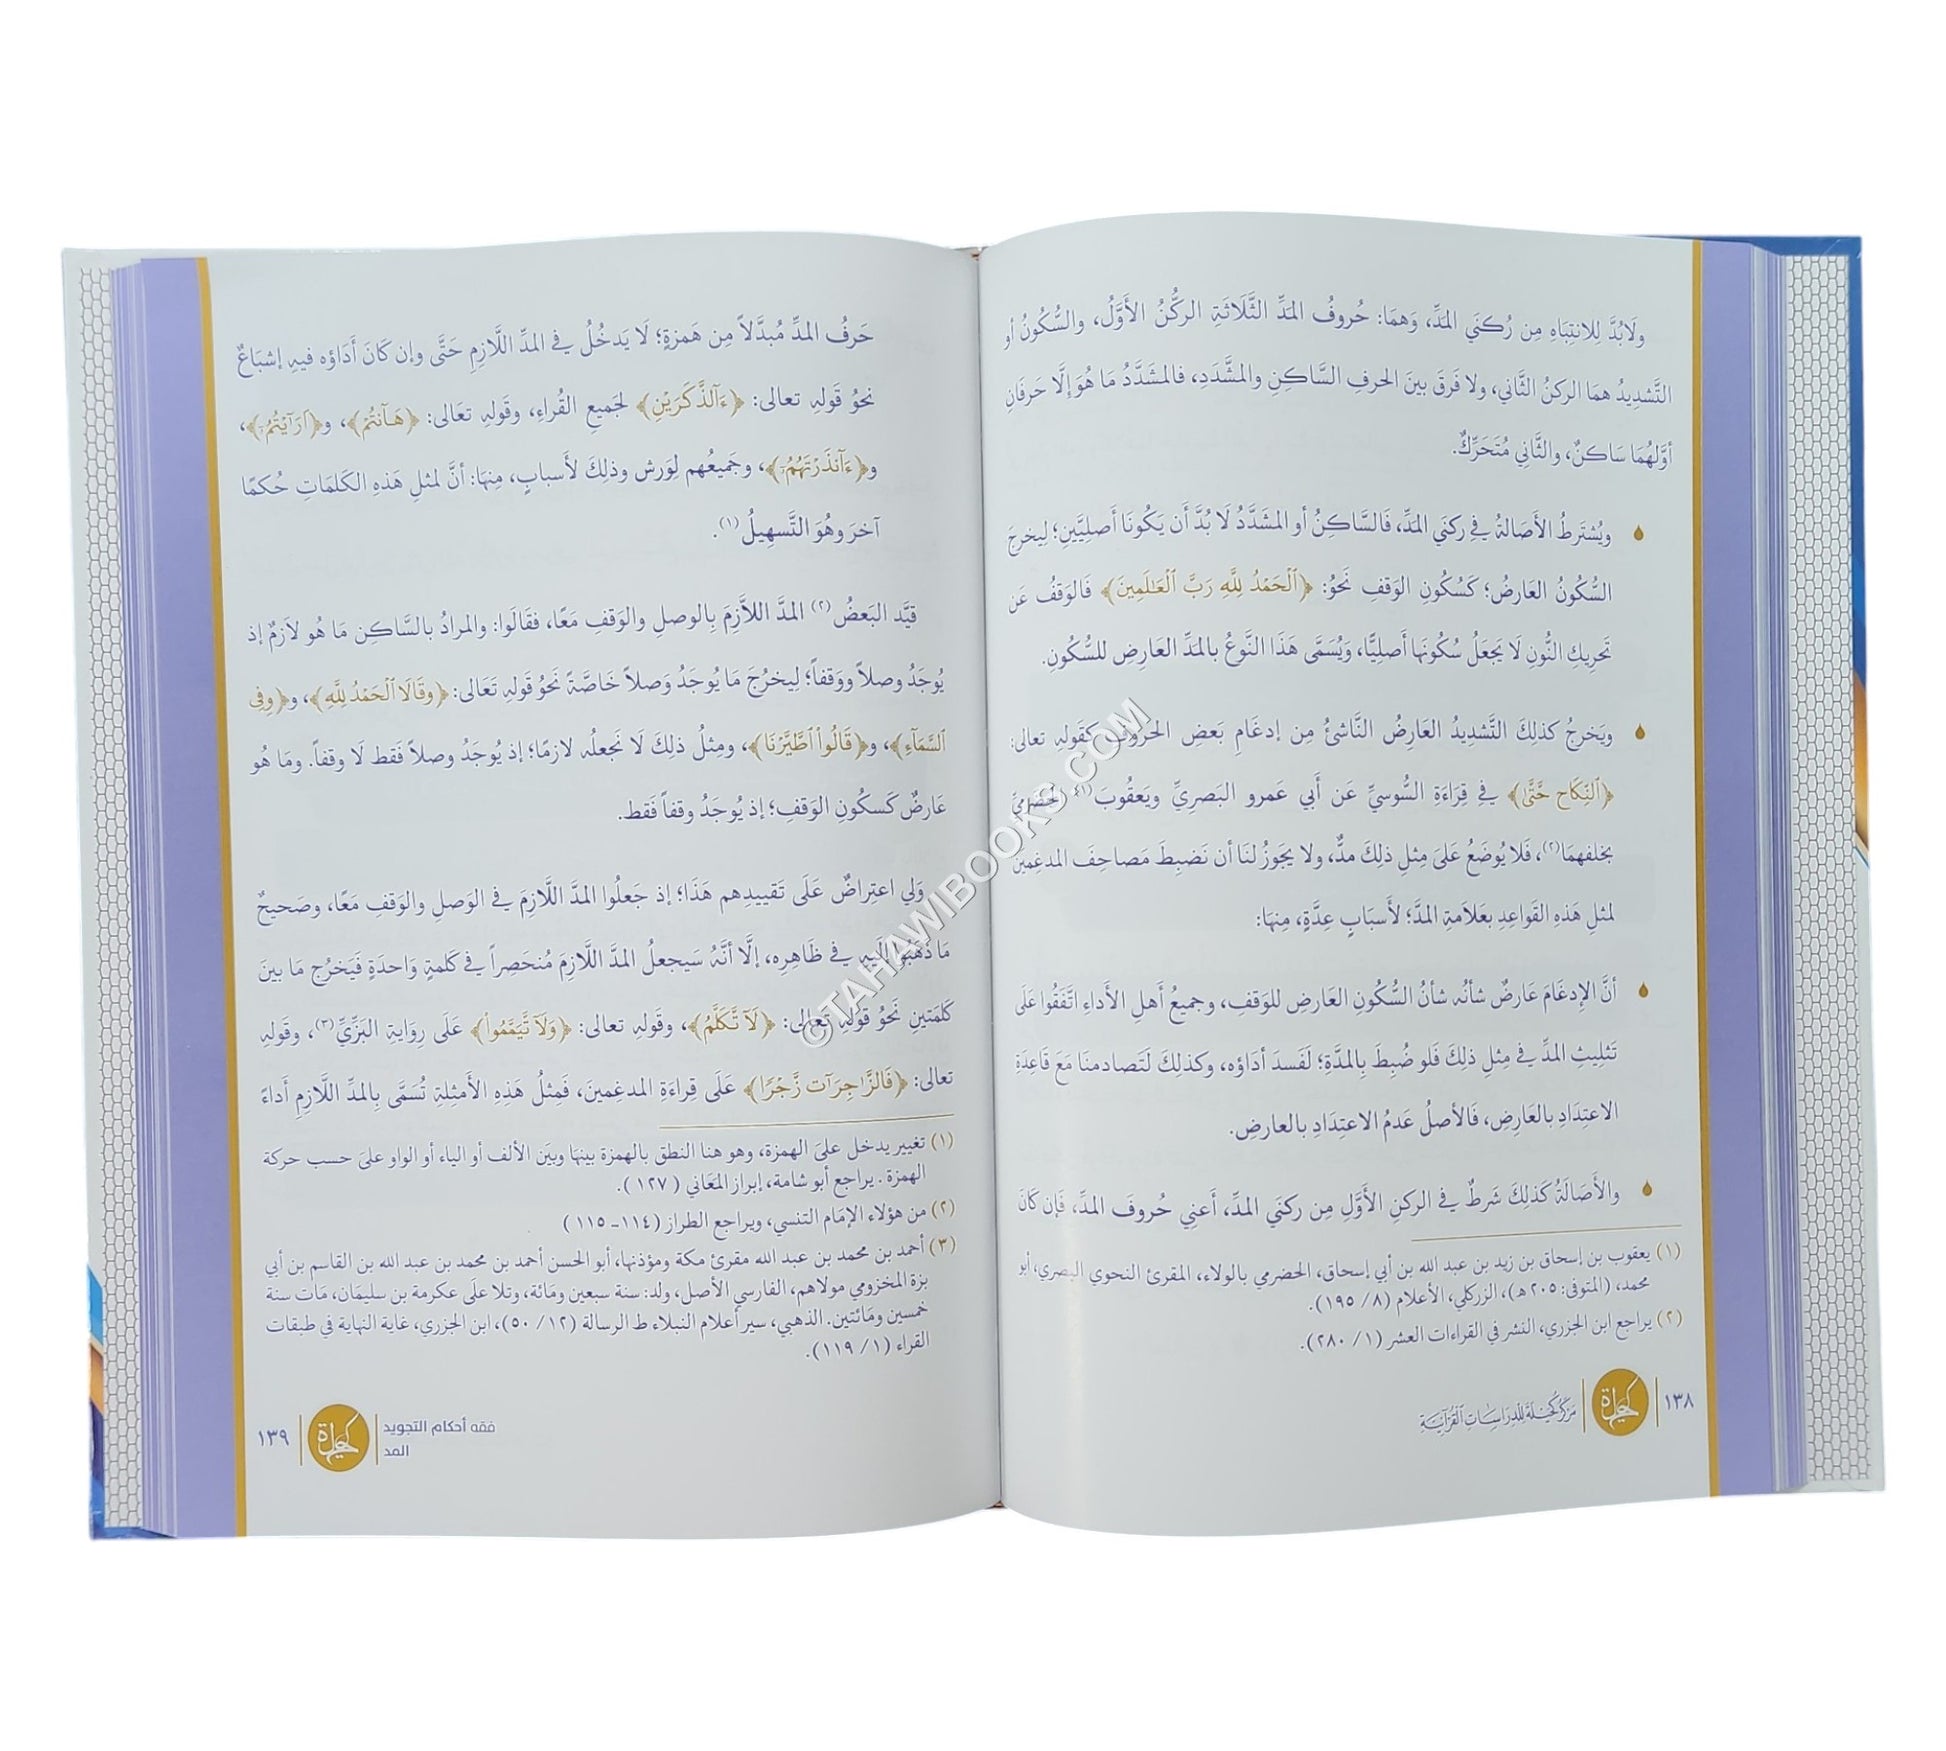 ولَابُدَّ لِلانتِبَاهِ مِن رُكنَي المَدِّ، وَهمَا: حُروفُ المَدِّ الثَّلَاثَةِ الركُّنُ الأَوَّلُ، والسُّكُونُ أو
التَّشدِيدُ همَا الركنُ الثَّاني، ولا فَرقَ بينَ الحرفِ السَّاكِنِ والمشَّدَدِ، فالمشَدَّدُ مَا هُوَ إلَّا حَرفَانِ
أوَّلهُمَا سَاكنٌ، والثَّانِي مُتَحَرِّكٌ.
ويُشتَرطُ الأَصَالةُ فِي ركنَي المَدِّ، فَالسَّاكِنُ أو المشَدَّدُ لَا بُدَّ أَن يَكُونَا أَصلِيَّينِ؛ لِيخرجَ
السُّكُونُ العَارضُ؛ كَسُكُونِ الوَقفِ نَحوُ: ﴿ٱلۡحَمۡدُ لِلَّهِ رَبِّ ٱلۡعَٰلَمِينَ﴾ فَالوَقفُ عَن
تَحرِيكِ النُّونِ لَا يَجعَلُ سُكُونَهَا أَصلِيًّا، وَيُسَمَّى هَذَا النَّوعُ بالمَدِّ العَارِضِ للسُّكُونِ.
ويَخرجُ كذلِكَ التَّشدِيدُ العَارِضُ النَّاشئُ مِن إدغَامِ بَعضِ الحرُوفِ كقَولهِ تعالى:
﴿ٱلنِّكَاح حَّتَّىٰ﴾ فِي قِرَاءَةِ السُّوسيِّ عَن أَبي عَمرو البَصرِيِّ ويَعقُوبَ (١) الحَضرَميِّ
بخلفهمَا(٢)، فَلا يُوضَعُ عَلىَ مِثلِ ذلِكَ مدٌّ، ولا يجَوزُ لنَا أن نَضبِطَ مَصاحِفَ المدغِمينَ
لمثلِ هَذِهِ القَواعِدِ بعَلاَمَةِ المدَّ؛ لأَسبَابٍ عِدَّةٍ، مِنهَا:
أنَّ الإدغَامَ عَارضٌ شأنُه شأنُ السُّكُونِ العَارضِ للوَقفِ، وجميعُ أَهلِ الأَداءِ اتَّفَقُوا عَلَى
تَثلِيثِ المدِّ في مِثلِ ذلِكَ فَلو ضُبِطَ بِالمدَّةِ؛ لَفَسدَ أدَاؤه، وكذلِكَ لَتَصادمنَا مَعَ قَاعِدَةِ
الاعتِدَادِ بالعَارِضِ، فَالأصلُ عَدمُ الاعتِدَادِ بالعارضِ.
والأَصَالَةُ كَذلِكَ شَرطٌ في الركنِ الأَوَّلِ مِن ركنَي المدِّ، أَعنِي حُروفَ المدِّ، فَإن كَانَ
(١) يعقوب بن إسحاق بن زيد بن عبد الله بن أبي إسحاق، الحضرمي بالولاء، المقرئ النحوي البصري، أبو
محمد، (المتوفى: ٢٠٥ هـ)، الزركلي، الأعلام (٨/ ١٩٥).
(٢) يراجع ابن الجزري، النشر في القراءات العشر (١/ ٢٨٠).
١٣٨
كحيلة
مَركزُ كُحَيلَة للدِّراسَاتِ القُرآنِيَّة
حَرفُ المدِّ مُبدَّلاً مِن هَمزةٍ؛ لَا يَدخُلُ في المدِّ اللَّازِمِ حَتَّى وإن كَانَ أَدَاؤه فيهِ إشبَاعٌ
نحوُ قَولهِ تعالى: ﴿ءَآلذَّكَرَيۡنِ﴾ لجَميعِ القُراءِ، وقَولهِ تعَالى: ﴿هَآنتُمۡ﴾، و﴿أَرَآيۡتُمُۥ﴾،
و﴿ءَآنذَرۡتَهُمُۥ﴾، وجَميعُهم لِوَرش وذلِكَ لأَسبابٍ، مِنهَا: أنَّ لمثلِ هَذهِ الكَلمَاتِ حُكمًا
آخرَ وهُوَ التَّسهِيلُ (١).
قيَّد البَعضُ (٢) المدَّ اللاَّزِمَ بِالوصلِ والوَقفِ مَعًا، فقَالَوا: والمرادُ بالسَّاكِن مَا هُو لاَزمٌ إذ
يُوجَدُ وصلاً ووَقفاً؛ لِيخرُجَ مَا يُوجَدُ وَصلاً خَاصَّةً نَحوُ قَولهِ تَعَالى: ﴿وقَالَا ٱلۡحَمۡدُ لِلَّهِ﴾، و﴿وفِي
ٱلسَّمَآءِ﴾، و﴿قَالُواْ ٱطَّيَّرۡنَا﴾، ومِثلُ ذلكَ لَا نَجعلُه لازمًا؛ إذ يُوجَدُ وصلاً فَقط لَا وقفاً. ومَا هُو
عَارضٌ كَسكُونِ الوَقفِ؛ إذ يُوجَدُ وقفاً فَقط.
وَلي اعتِراضٌ عَلَى تَقييدِهم هَذَا؛ إذ جَعلُوا المدَّ اللَّازمَ في الوَصلِ والوَقفِ مَعًا، وصَحيحٌ
مَا ذَهَبُوا إلَيهِ في ظَاهِره، إلَّا أنَّهُ سَيجعلُ المدَّ اللَّازمَ مُنحَصِراً في كَلمةٍ وَاحدَةٍ فَيَخرُج مَا بينَ
كَلمَتينِ نَحوُ قولهِ تعَالى: ﴿لَآ تَّكَلَّمُ﴾، وقَولهِ تعالى: ﴿وَلَآ تَّيَمَّمُواْ﴾ عَلَى رِوَايةِ البَزِّيِّ(٣)، وقَولهِ
تعالى: ﴿فَٱلزَّٰجِرَآت زَّجۡرٗا﴾ عَلَى قِراءَةِ المدغِمينَ، فَمِثلُ هَذِهِ الأَمثِلةِ تُسَمَّى بِالمدِّ اللَّازمِ أَداءً
(١) تغيير يدخل على الهمزة، وهو هنا النطق بالهمزة بينها وبين الألف أو الياء أو الواو على حسب حركة
الهمزة . يراجع أبو شامة، إبراز المعَاني ( ١٢٧ ).
(٢) من هؤلاء الإمَام التنسي، ويراجع الطراز (١١٤- ١١٥ )
(٣) أحمد بن محمد بن عبد الله مقرئ مكة ومؤذنها، أبو الحسن أحمد بن محمد بن عبد الله بن القاسم بن أبي
بزة المخزومي مولاهم، الفارسي الأصل، ولد: سنة سبعين ومَائة، وتلا على عكرمة بن سليمَان، مَات سنة
خمسين ومَائتين. الذهبي، سير أعلام النبلاء ط الرسالة (١٢/ ٥٠)، ابن الجزري، غاية النهاية في طبقات
القراء (١/ ١١٩).
فقه أحكام التجويد
المد
كحيلة
١٣٩
©TAHAWIBOOKS.COM